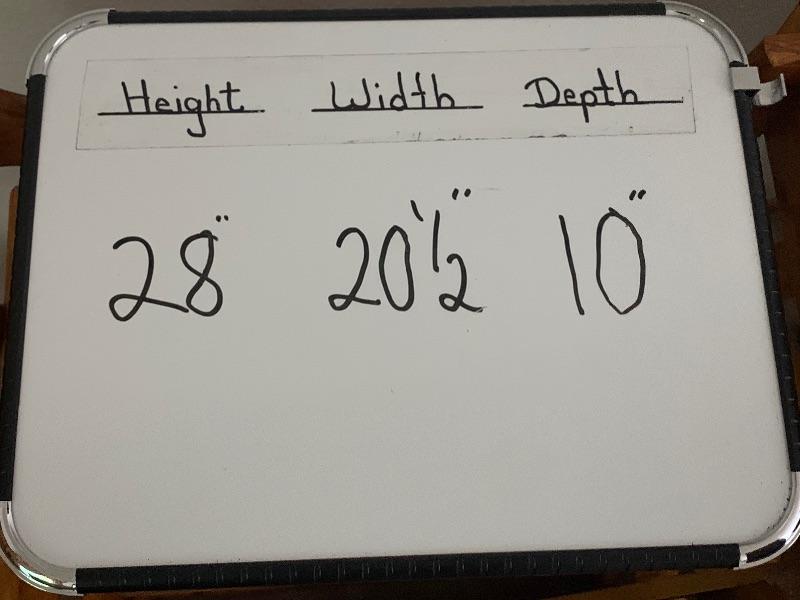 Height Width Depth
28" 20 1/2" 10"